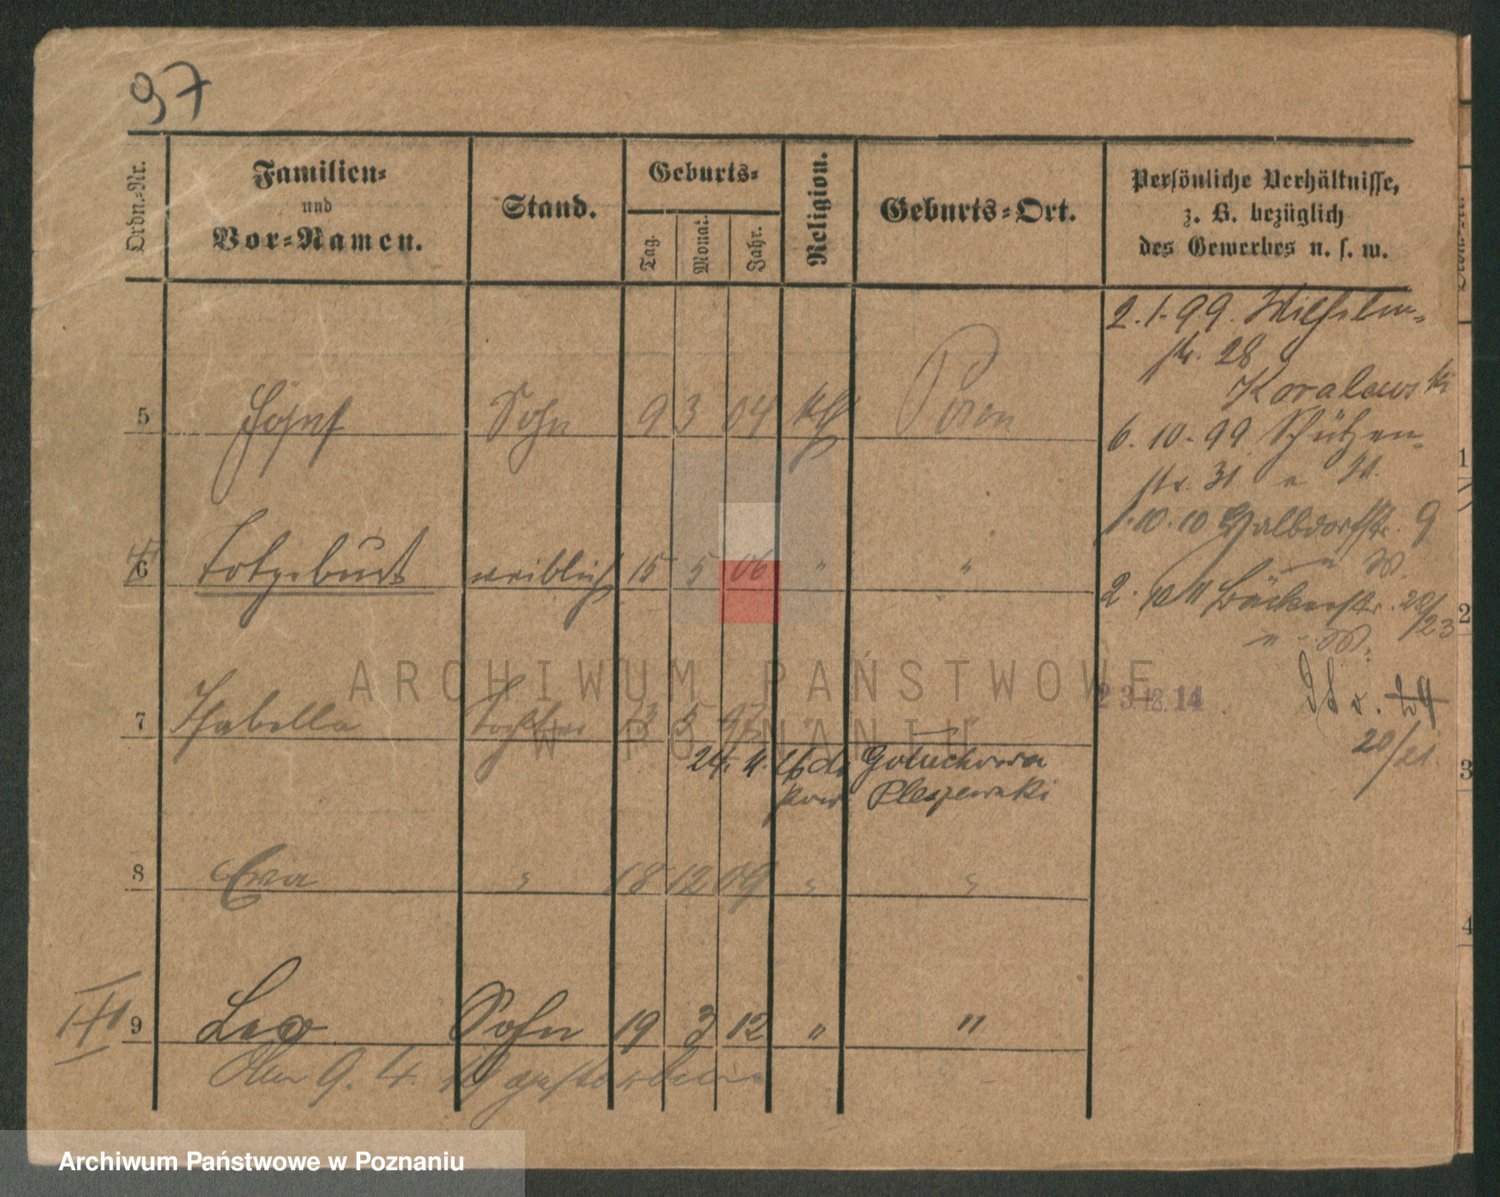 97
Ordn.-Nr.
Familien-
und
Vor-Namen.
Stand.
Geburts-
Tag.
Monat.
Jahr.
Religion.
Geburts-Ort.
Persönliche Verhältnisse,
z. B. bezüglich
des Gewerbes u. s. w.
2.1.99. Wilhelm-
str. 28
Koralewski
5 Josef Sohn 9 3 04 kth Posen
6.10.99 Schützen-
str. 31
1.10.10 Halbdorfstr. 9
6 Totgeburt weiblich 15 5 06 " "
2. Bäckerstr. 22/23
ARCHIWUM PAŃSTWOWE
W POZNANIU
23.12.14
7 Isabella Tochter 13 5 "
20/21
24. 4. Gołuchowa
pow. Pleszewski
8 Eva " 18 12 09 " "
9 Leo Sohn 19 3 12 " "
Am 9. 4. 12 gestorben
1
2
3
4
Archiwum Państwowe w Poznaniu